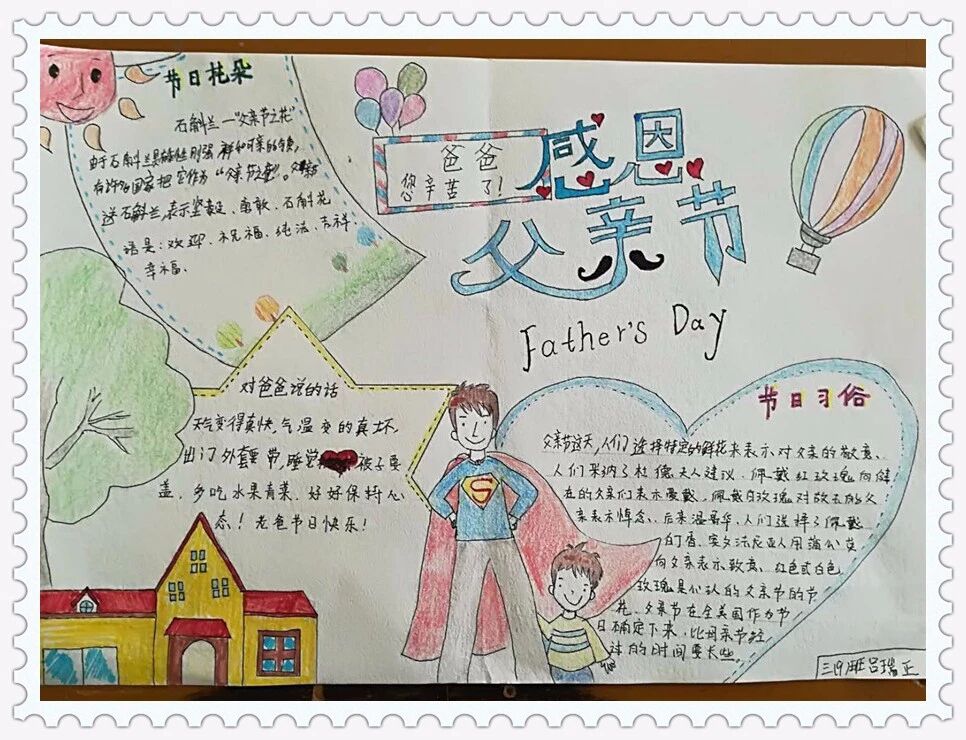 节日花朵
石斛兰—“父亲节之花”
由于石斛兰具有秉性刚强祥和可亲的气质,
有许多国家把它作为“父亲节之花”。父亲节
送石斛兰,表示坚毅、勇敢、石斛花
语是:欢迎、祝福、纯洁、吉祥
幸福、
爸爸
您辛苦了!
感恩
父亲节
Father's Day
对爸爸说的话
天气变得真快,气温变的真坏,
出门外套要带,睡觉被子要
盖,多吃水果青菜,好好保持心
态!老爸节日快乐!
S
节日习俗
父亲节这天,人们选择特定的鲜花来表示对父亲的敬意、
人们采纳了杜德夫人建议、佩戴红玫瑰向健
在的父亲们表示爱戴、佩戴白玫瑰对故去的父
亲表示悼念、后来温哥华、人们选择了佩戴
白丁香、宾夕法尼亚人用蒲公英
向父亲表示致意、红色或白色
玫瑰是公认的父亲节的节
花、父亲节在全美国作为节
日确定下来、比母亲节经
过的时间要长些、
三19班吕瑞正